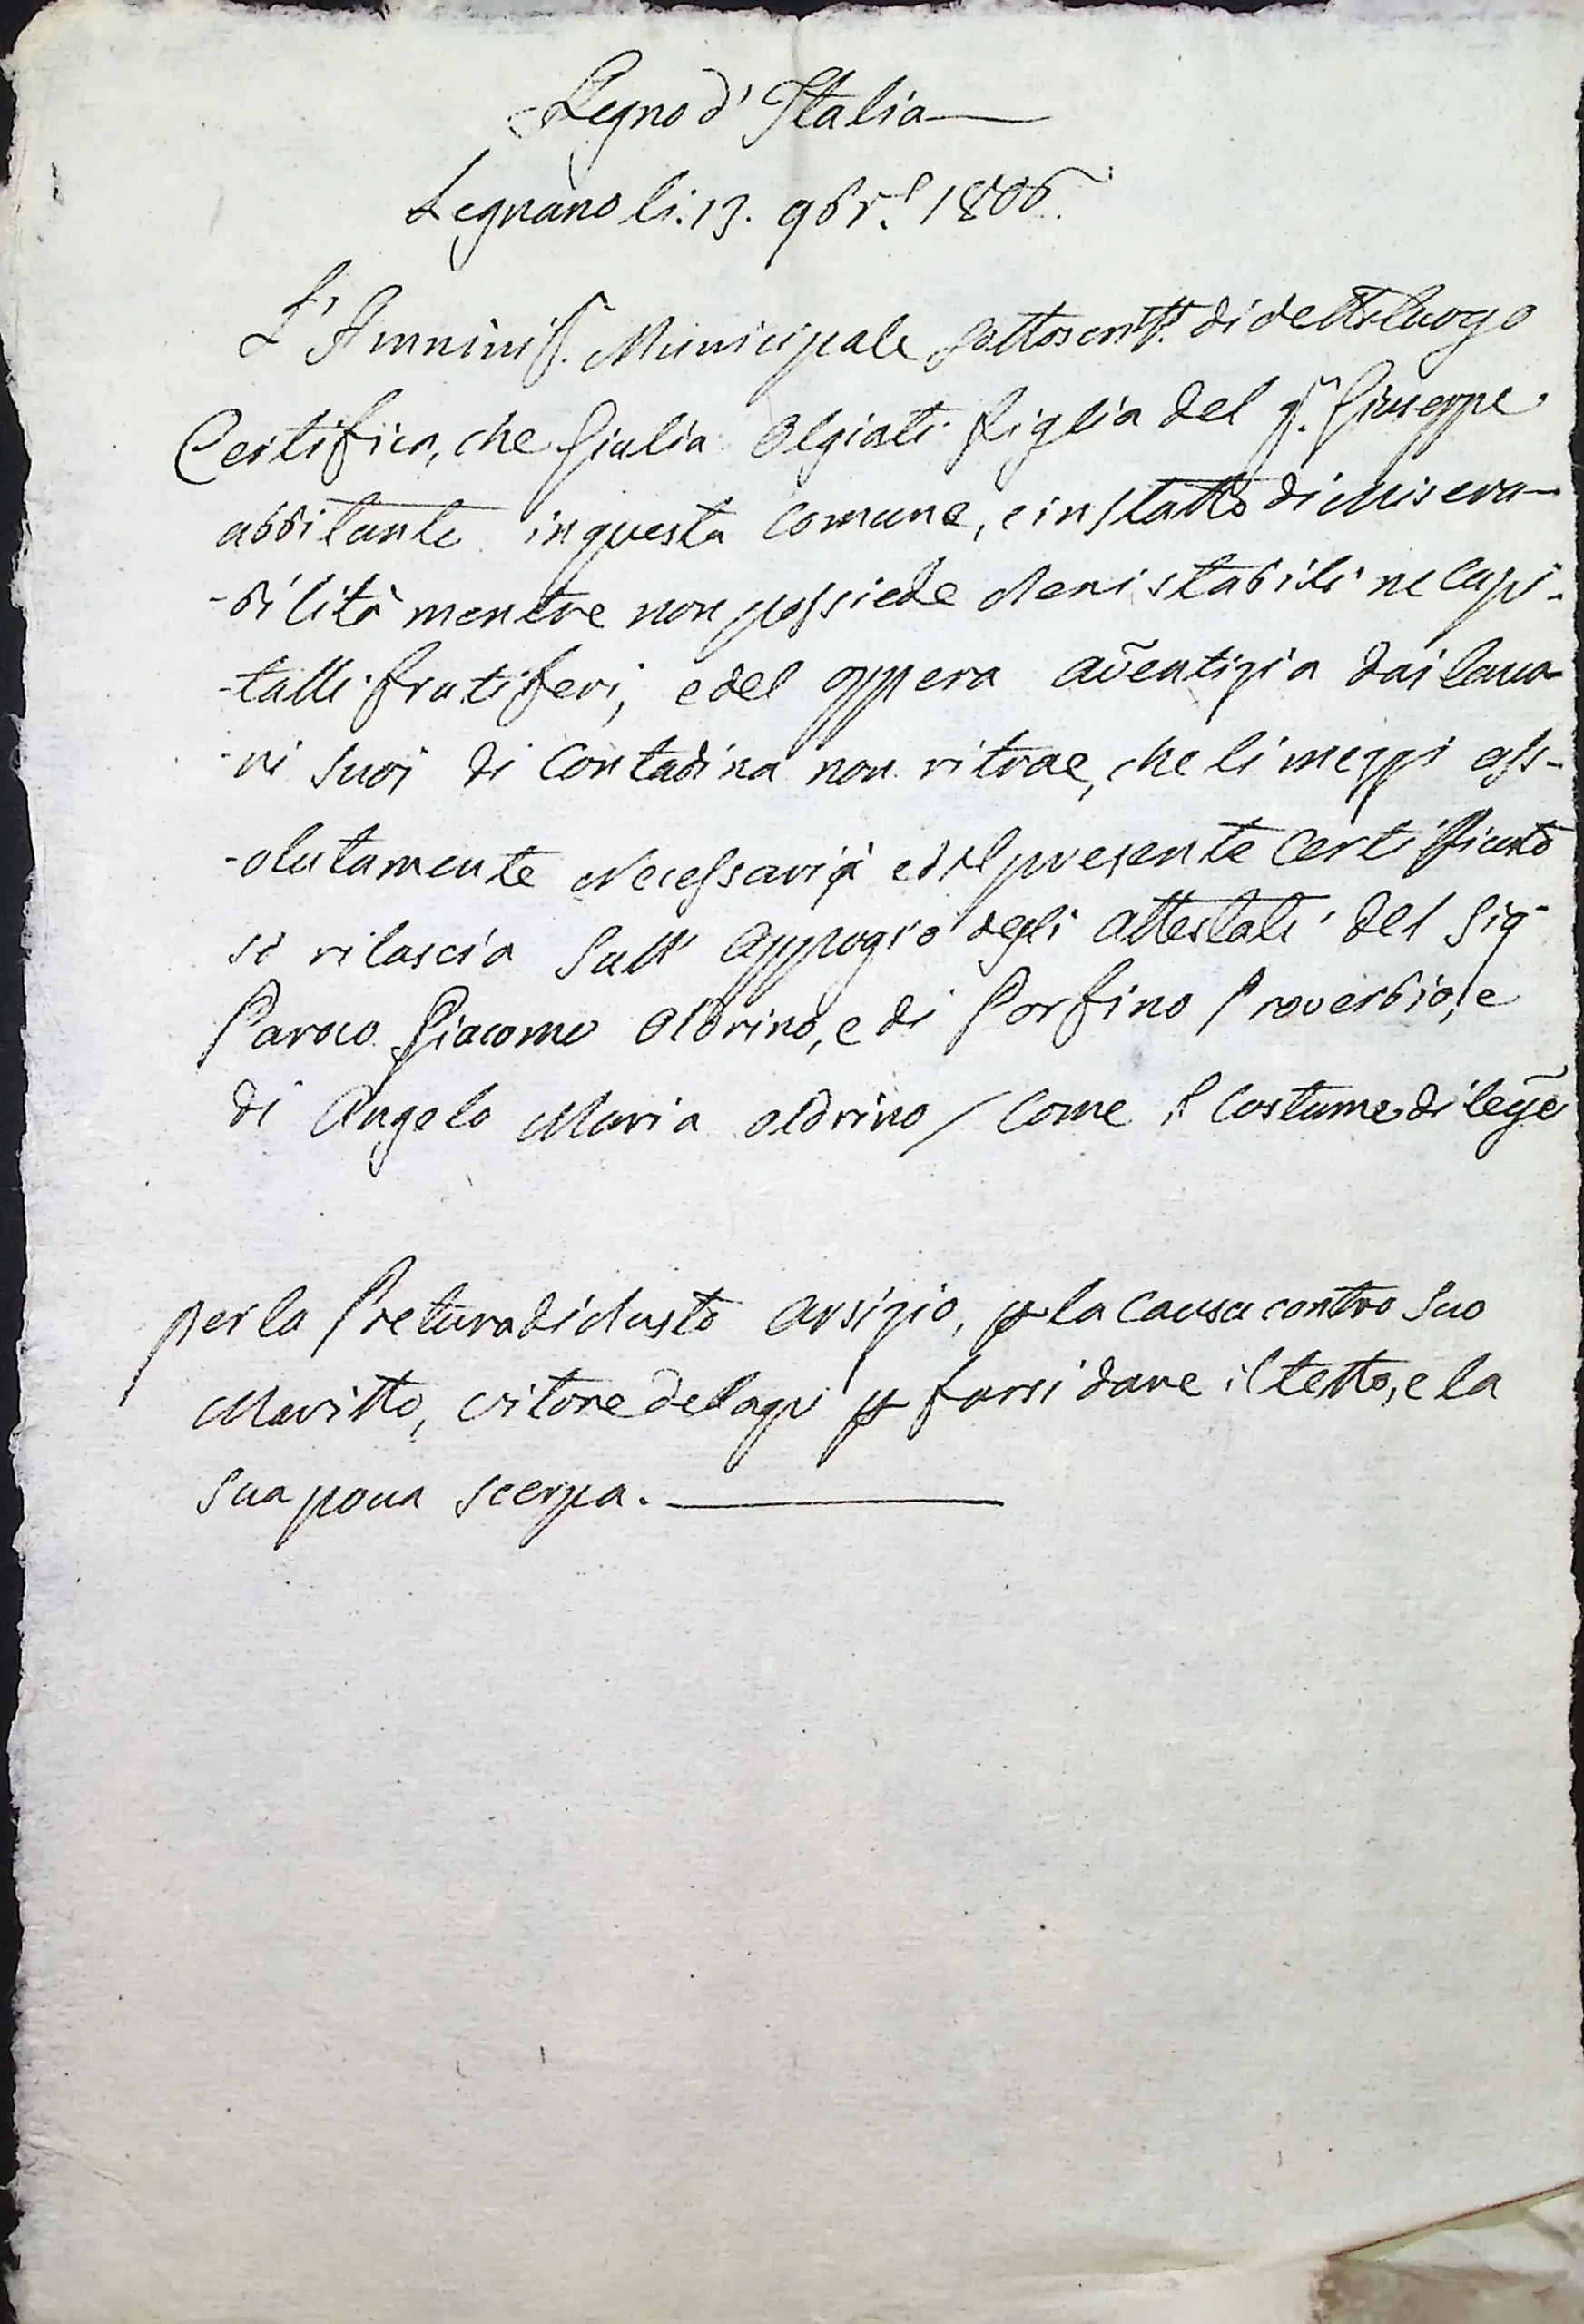 Regno d' Italia
Legnano li. 13. 9br.e 1806.
L' Amminis. Municipale sottoscritt. di detto luogo
Certifica, che Giulia Olgiati figlia del q.m Giuseppe
abbitante in questa Comune, e in statto di Misera-
-bilità mentre non possiede Beni stabili ne Capi-
-talli frutiferi, e del oppera aventizia dai lavo-
-ri suoi di Contadina non ritrae, che li mezzi ass-
-olutamente Necessarij ed il presente Certificato
si rilascia sull' appogio degli attestati del Sig.
Paroco Giacomo Oldrino, e di Porfino Proverbio, e
di Angelo Maria Oldrino / Come il Costume di legge
per la Pretura di Busto Arsizio, p la Causa contro suo
Maritto, p farsi dare il letto, e la
sua pova scerpa.